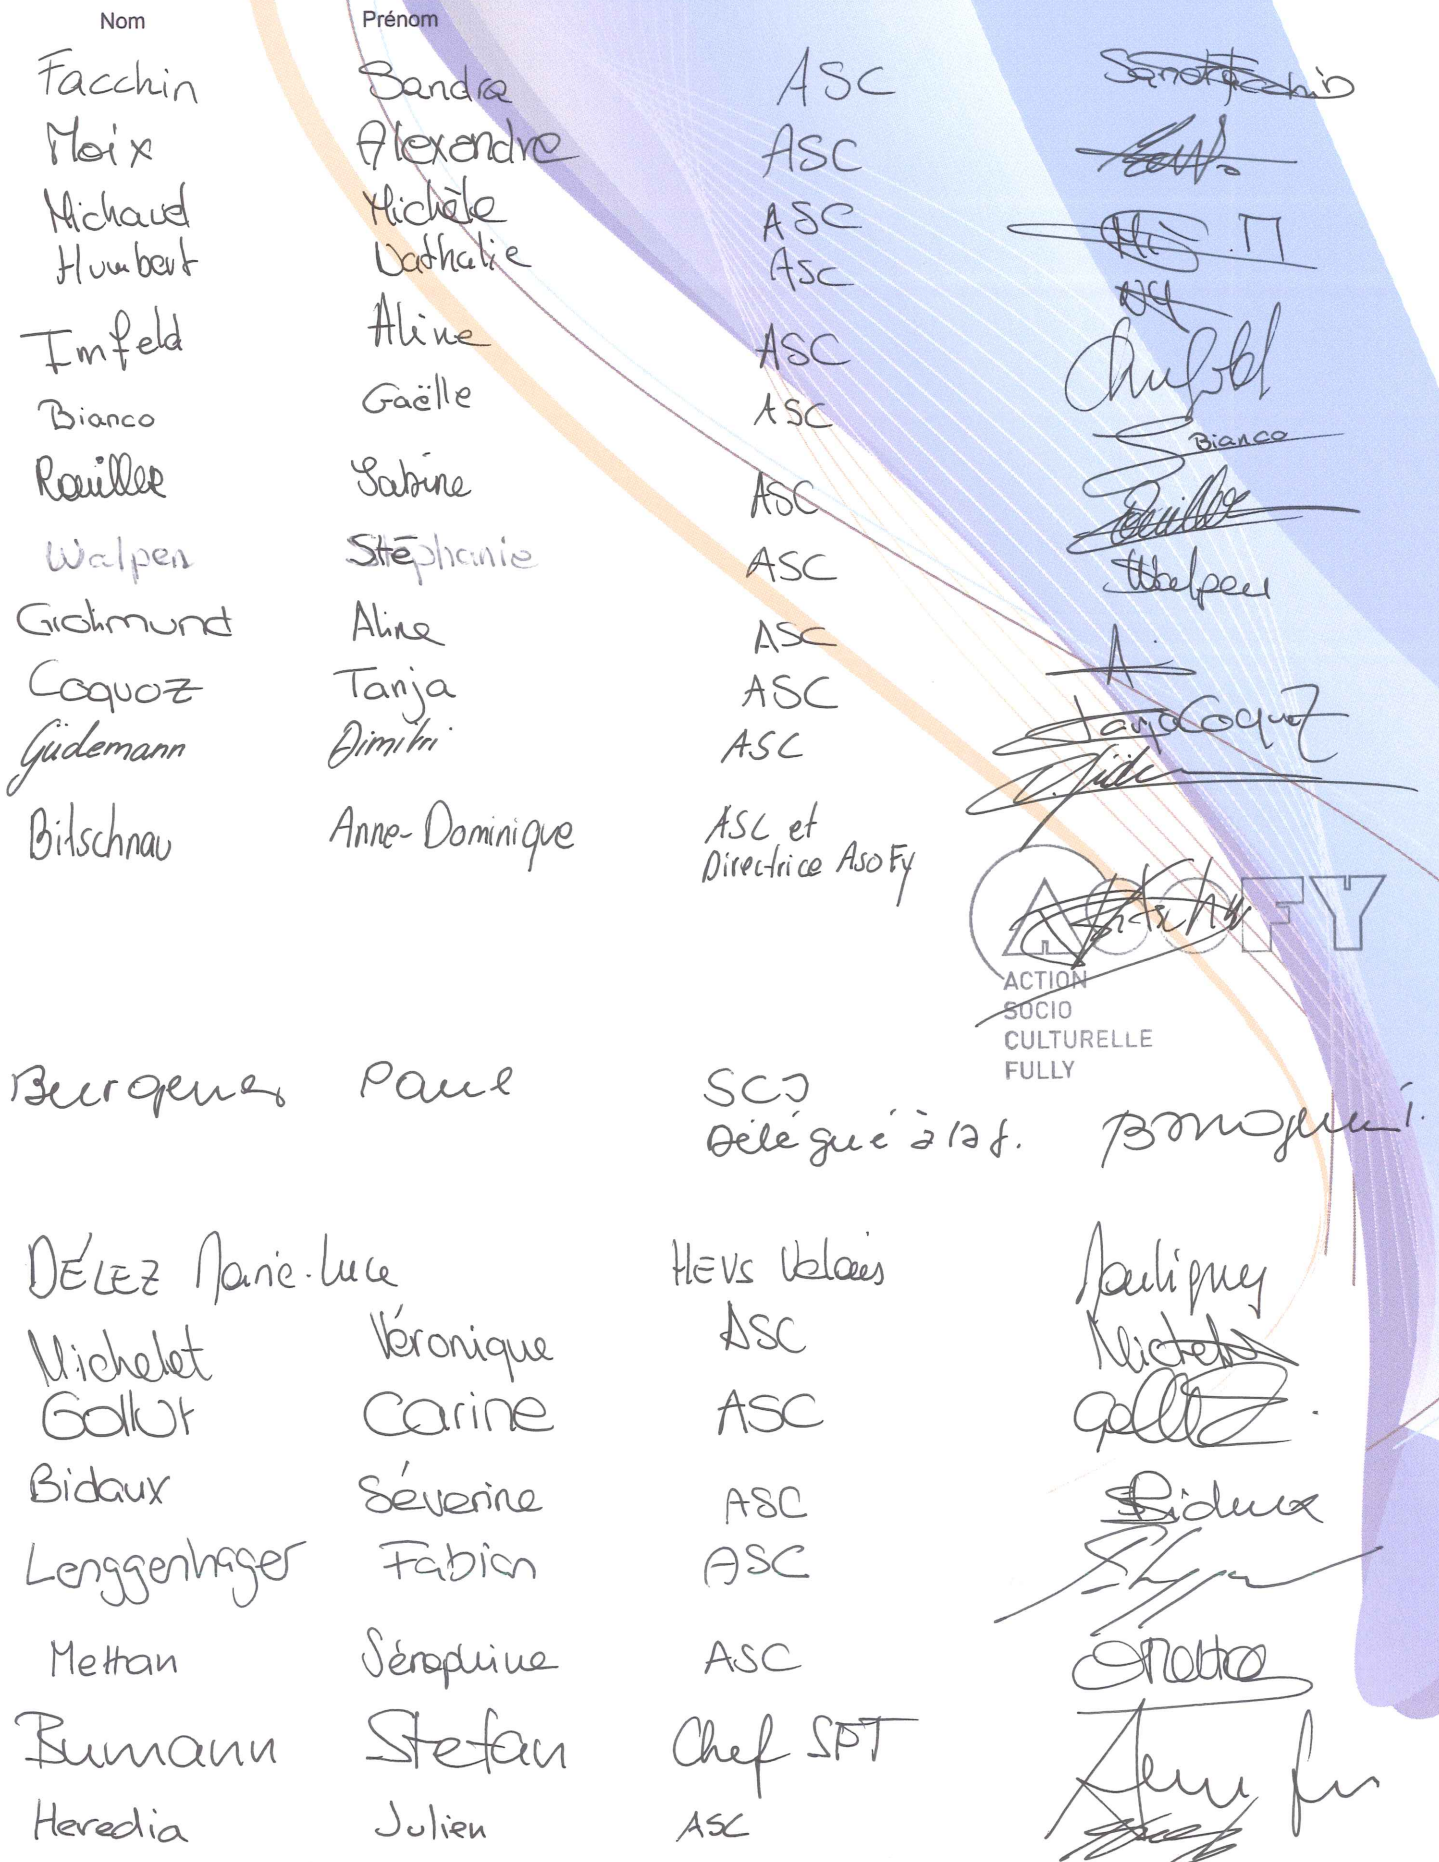 Nom Prénom
Facchin Sandra ASC
Moix Alexandre ASC
Michaud Michèle ASC
Humbert Nathalie ASC
Imfeld Aline ASC
Bianco Gaëlle ASC Bianco
Rouiller Sabine ASC
Walpen Stéphanie ASC Walpen
Grolimund Aline ASC
Coquoz Tanja ASC Tanja Coquoz
Güdemann Dimitri ASC
Bitschnau Anne-Dominique ASC et
Directrice AsoFy
ASOFY
ACTION
SOCIO
CULTURELLE
FULLY
Burgener Paul SCJ
Délégué à la J.
DÉLEZ Marie-Luce HEVS Valais
Michelet Véronique ASC Michelet
Gollut Carine ASC
Bidaux Séverine ASC Bidaux
Lenggenhager Fabian ASC
Mettan Séraphine ASC
Bumann Stefan Chef SPT
Heredia Julien ASC